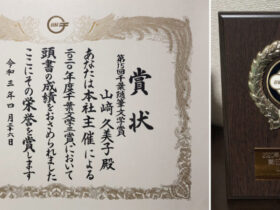 賞状
第15回千葉随筆文学賞
山﨑久美子殿
あなたは本社主催による
二〇二〇年度千葉文学三賞において
頭書の成績をおさめられました
ここにその栄誉を賞します
令和三年四月二十六日